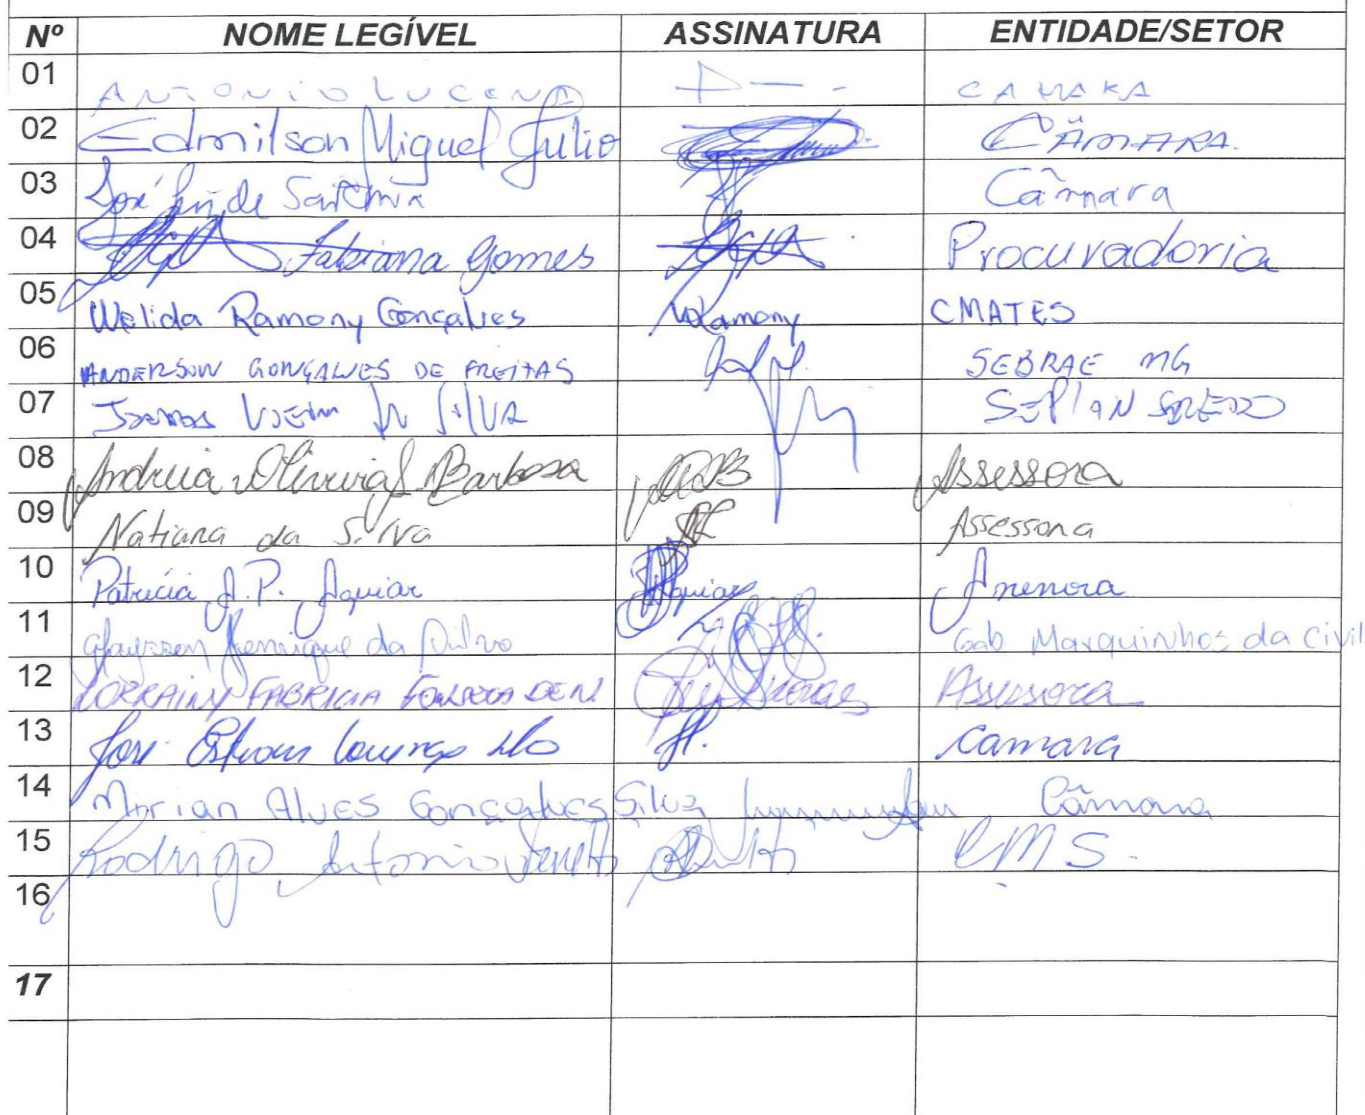 Nº NOME LEGÍVEL ASSINATURA ENTIDADE/SETOR
01 ANTONIO LUCENA CAMARA
02 Edmilson Miguel Julio CÂMARA.
03 José Câmara
04 Fabiana Gomes Procuradoria
05 Welida Ramony Gonçalves WRamony CMATES
06 ANDERSON GONÇALVES DE FREITAS SEBRAE MG
07 SILVA SEPLAN
08 Andreia Oliveira Barbosa Assessora
09 Natiana da Silva Assessora
10 Patrícia A.P. Aguiar Aguiar
11 Henrique da Silva Gab Marquinhos da Civil
12 LORRAINY FABRICIA FONSECA Assessora
13 José Camara
14 Mirian Alves Gonçalves Silva Câmara
15 Rodrigo Antonio CMS.
16
17